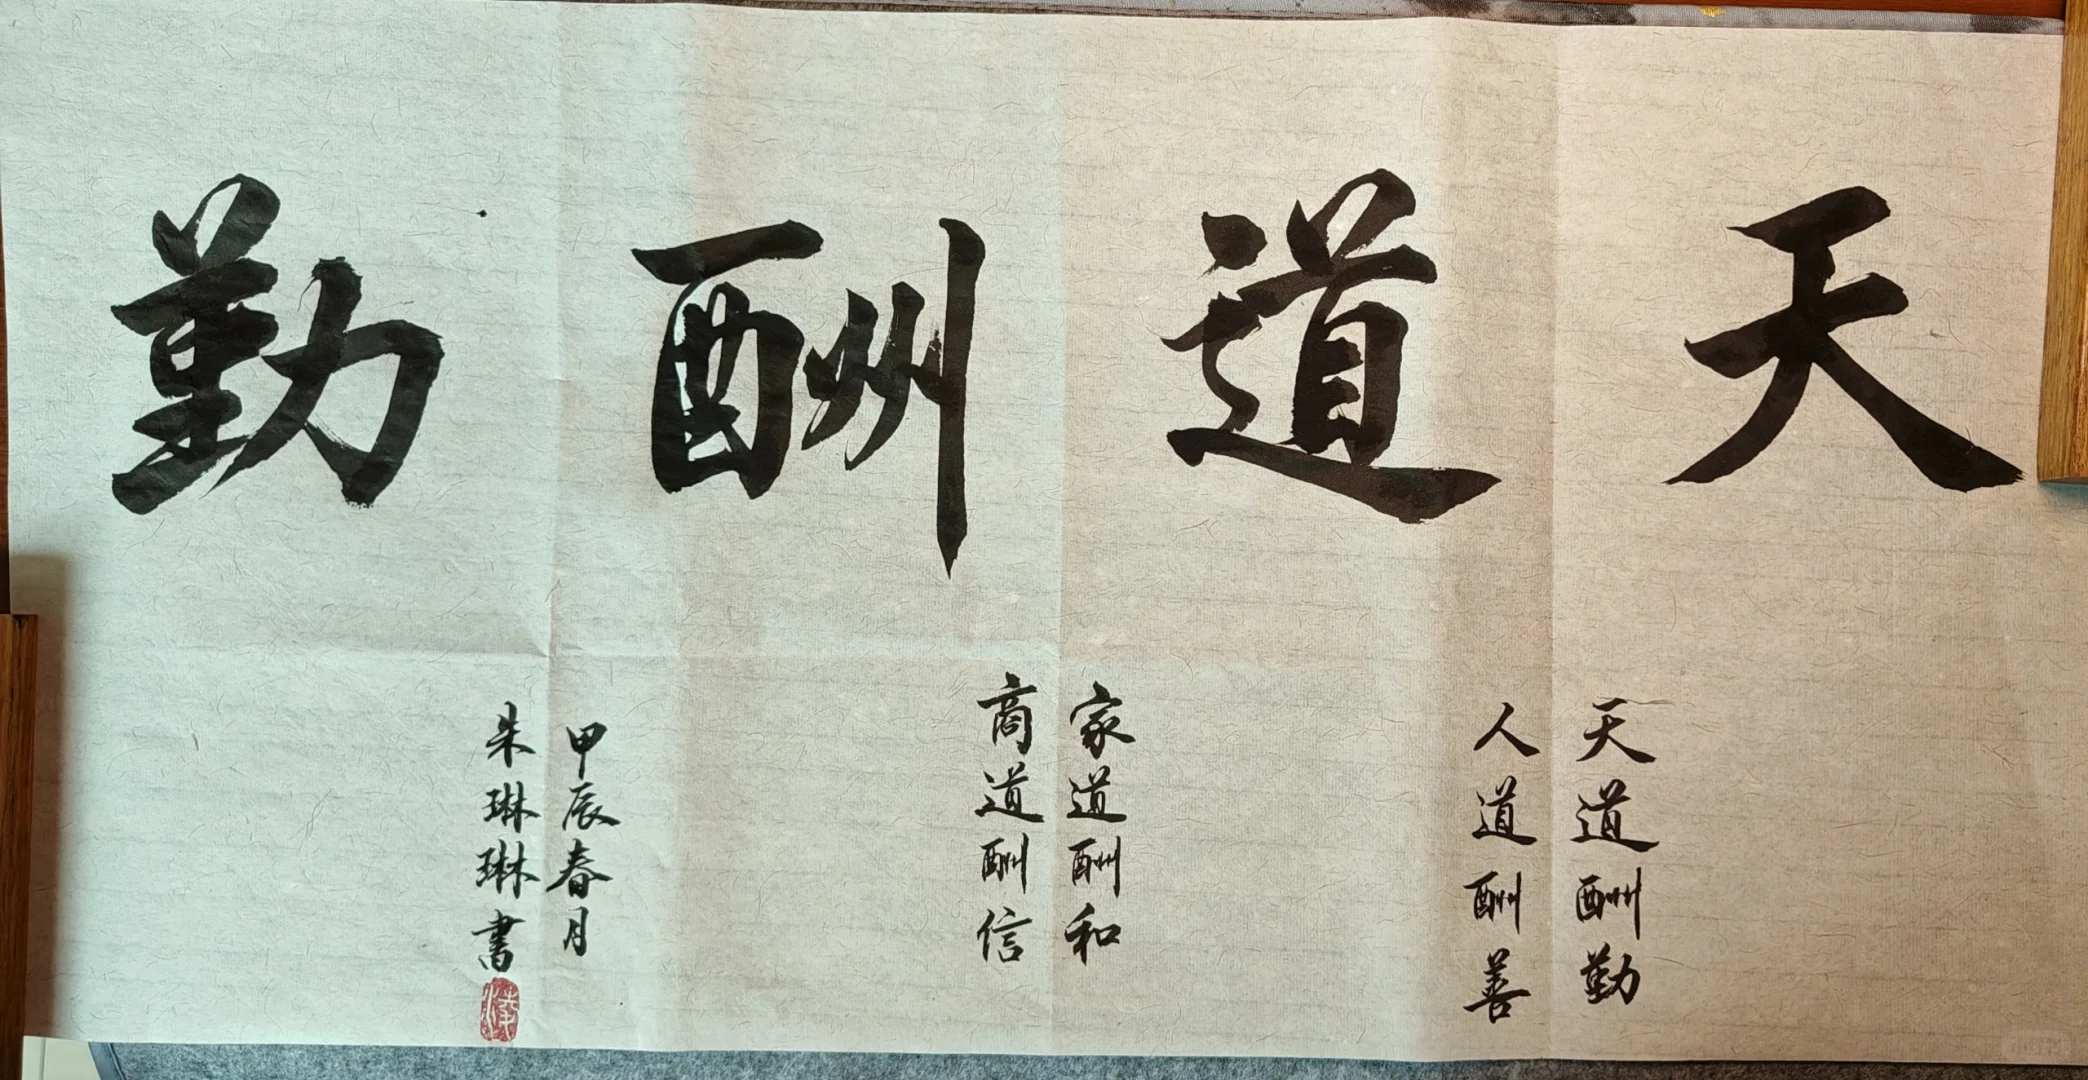 天道酬勤
天道酬勤
人道酬善
家道酬和
商道酬信
甲辰春月
朱琳琳書